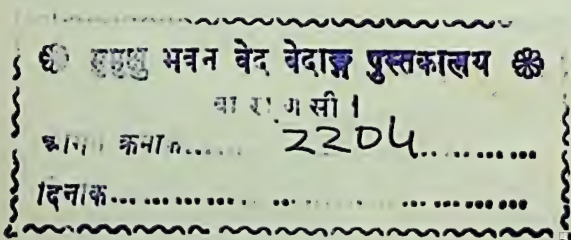 मुमुक्षु भवन वेद वेदाङ्ग पुस्तकालय
वाराणसी ।
आगत क्रमांक...... 2204.........
दिनांक.................................